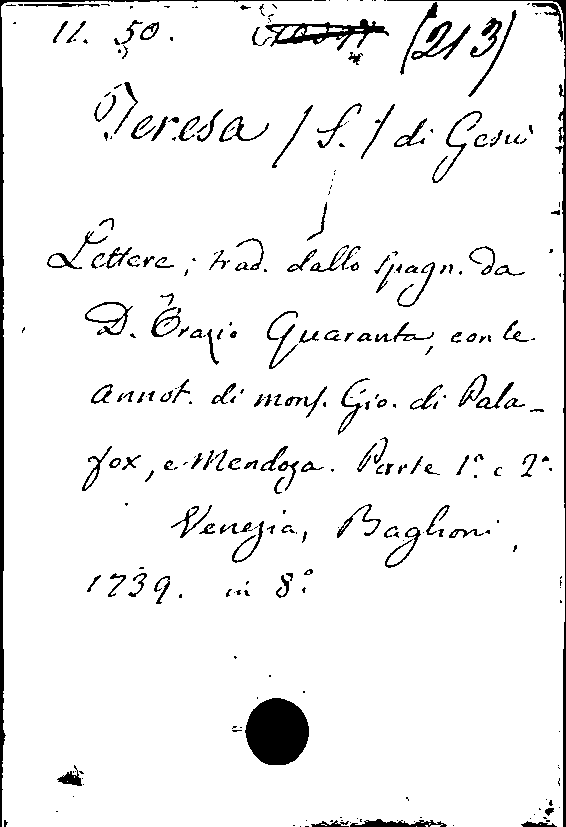 11. 50. (213)
Teresa / S. / di Gesù
Lettere; trad. dallo spagn. da
D. Orazio Quaranta, con le
annot. di mons. Gio. di Pala-
fox, e Mendoza. Parte 1.ª e 2.ª
Venezia, Baglioni,
1739. in 8.º